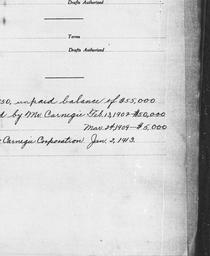 Drafts Authorized
Terms
Drafts Authorized
50, unpaid balance of $55,000
d by Mr. Carnegie Feb. 13, 1902-$50,000
Mar. 24, 1909-$5,000
Carnegie Corporation Jan. 2, 1913.